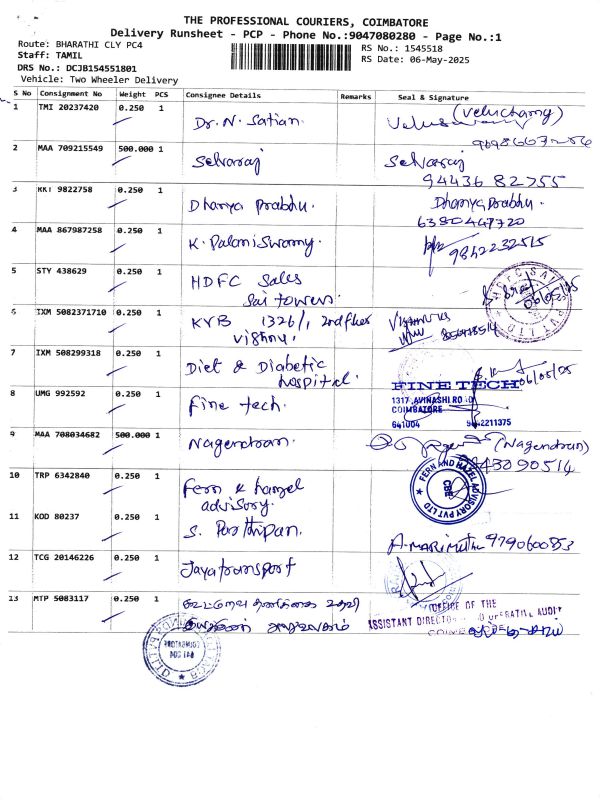 THE PROFESSIONAL COURIERS, COIMBATORE
Delivery Runsheet - PCP - Phone No.:9047080280 - Page No.:1
Route: BHARATHI CLY PC4
Staff: TAMIL
DRS No.: DCJB154551801
Vehicle: Two Wheeler Delivery
RS No.: 1545518
RS Date: 06-May-2025
S No Consignment No Weight PCS Consignee Details Remarks Seal & Signature
1 TMI 20237420 0.250 1 Dr. N. Satian. (Velucharny)
2 MAA 709215549 500.000 1 Selvaraj Selvaraj
94436 82755
3 KKI 9822758 0.250 1 Dhanya Prabhu. Dhanya Prabhu.
6380447720
4 MAA 867987258 0.250 1 K. Palaniswamy. 9842232515
5 STY 438629 0.250 1 HDFC Sales
Sai towers.
06/05/25
6 IXM 5082371710 0.250 1 KVB 1326/1, 2nd floor
Vishnu.
7 IXM 508299318 0.250 1 Diet & Diabetic
hospital.
06/05/25
8 UMG 992592 0.250 1 Fine tech.
FINE TECH
1317, AVINASHI ROAD
COIMBATORE
641004
9 MAA 708034682 500.000 1 Nagendran. (Nagendran)
10 TRP 6342840 0.250 1 Fern & hazel
advisory.
FERN AND HAZEL ADVISORY PVT LTD
CBE
11 KOD 80237 0.250 1 S. Parthipan. A. MARIMUTHU 9790600853
12 TCG 20146226 0.250 1 Jayatransport
13 MTP 5083117 0.250 1 கூட்டுறவு தணிக்கை உதவி
இயக்குனர் அலுவலகம்
OFFICE OF THE
ASSISTANT DIRECTOR OF CO-OPERATIVE AUDIT